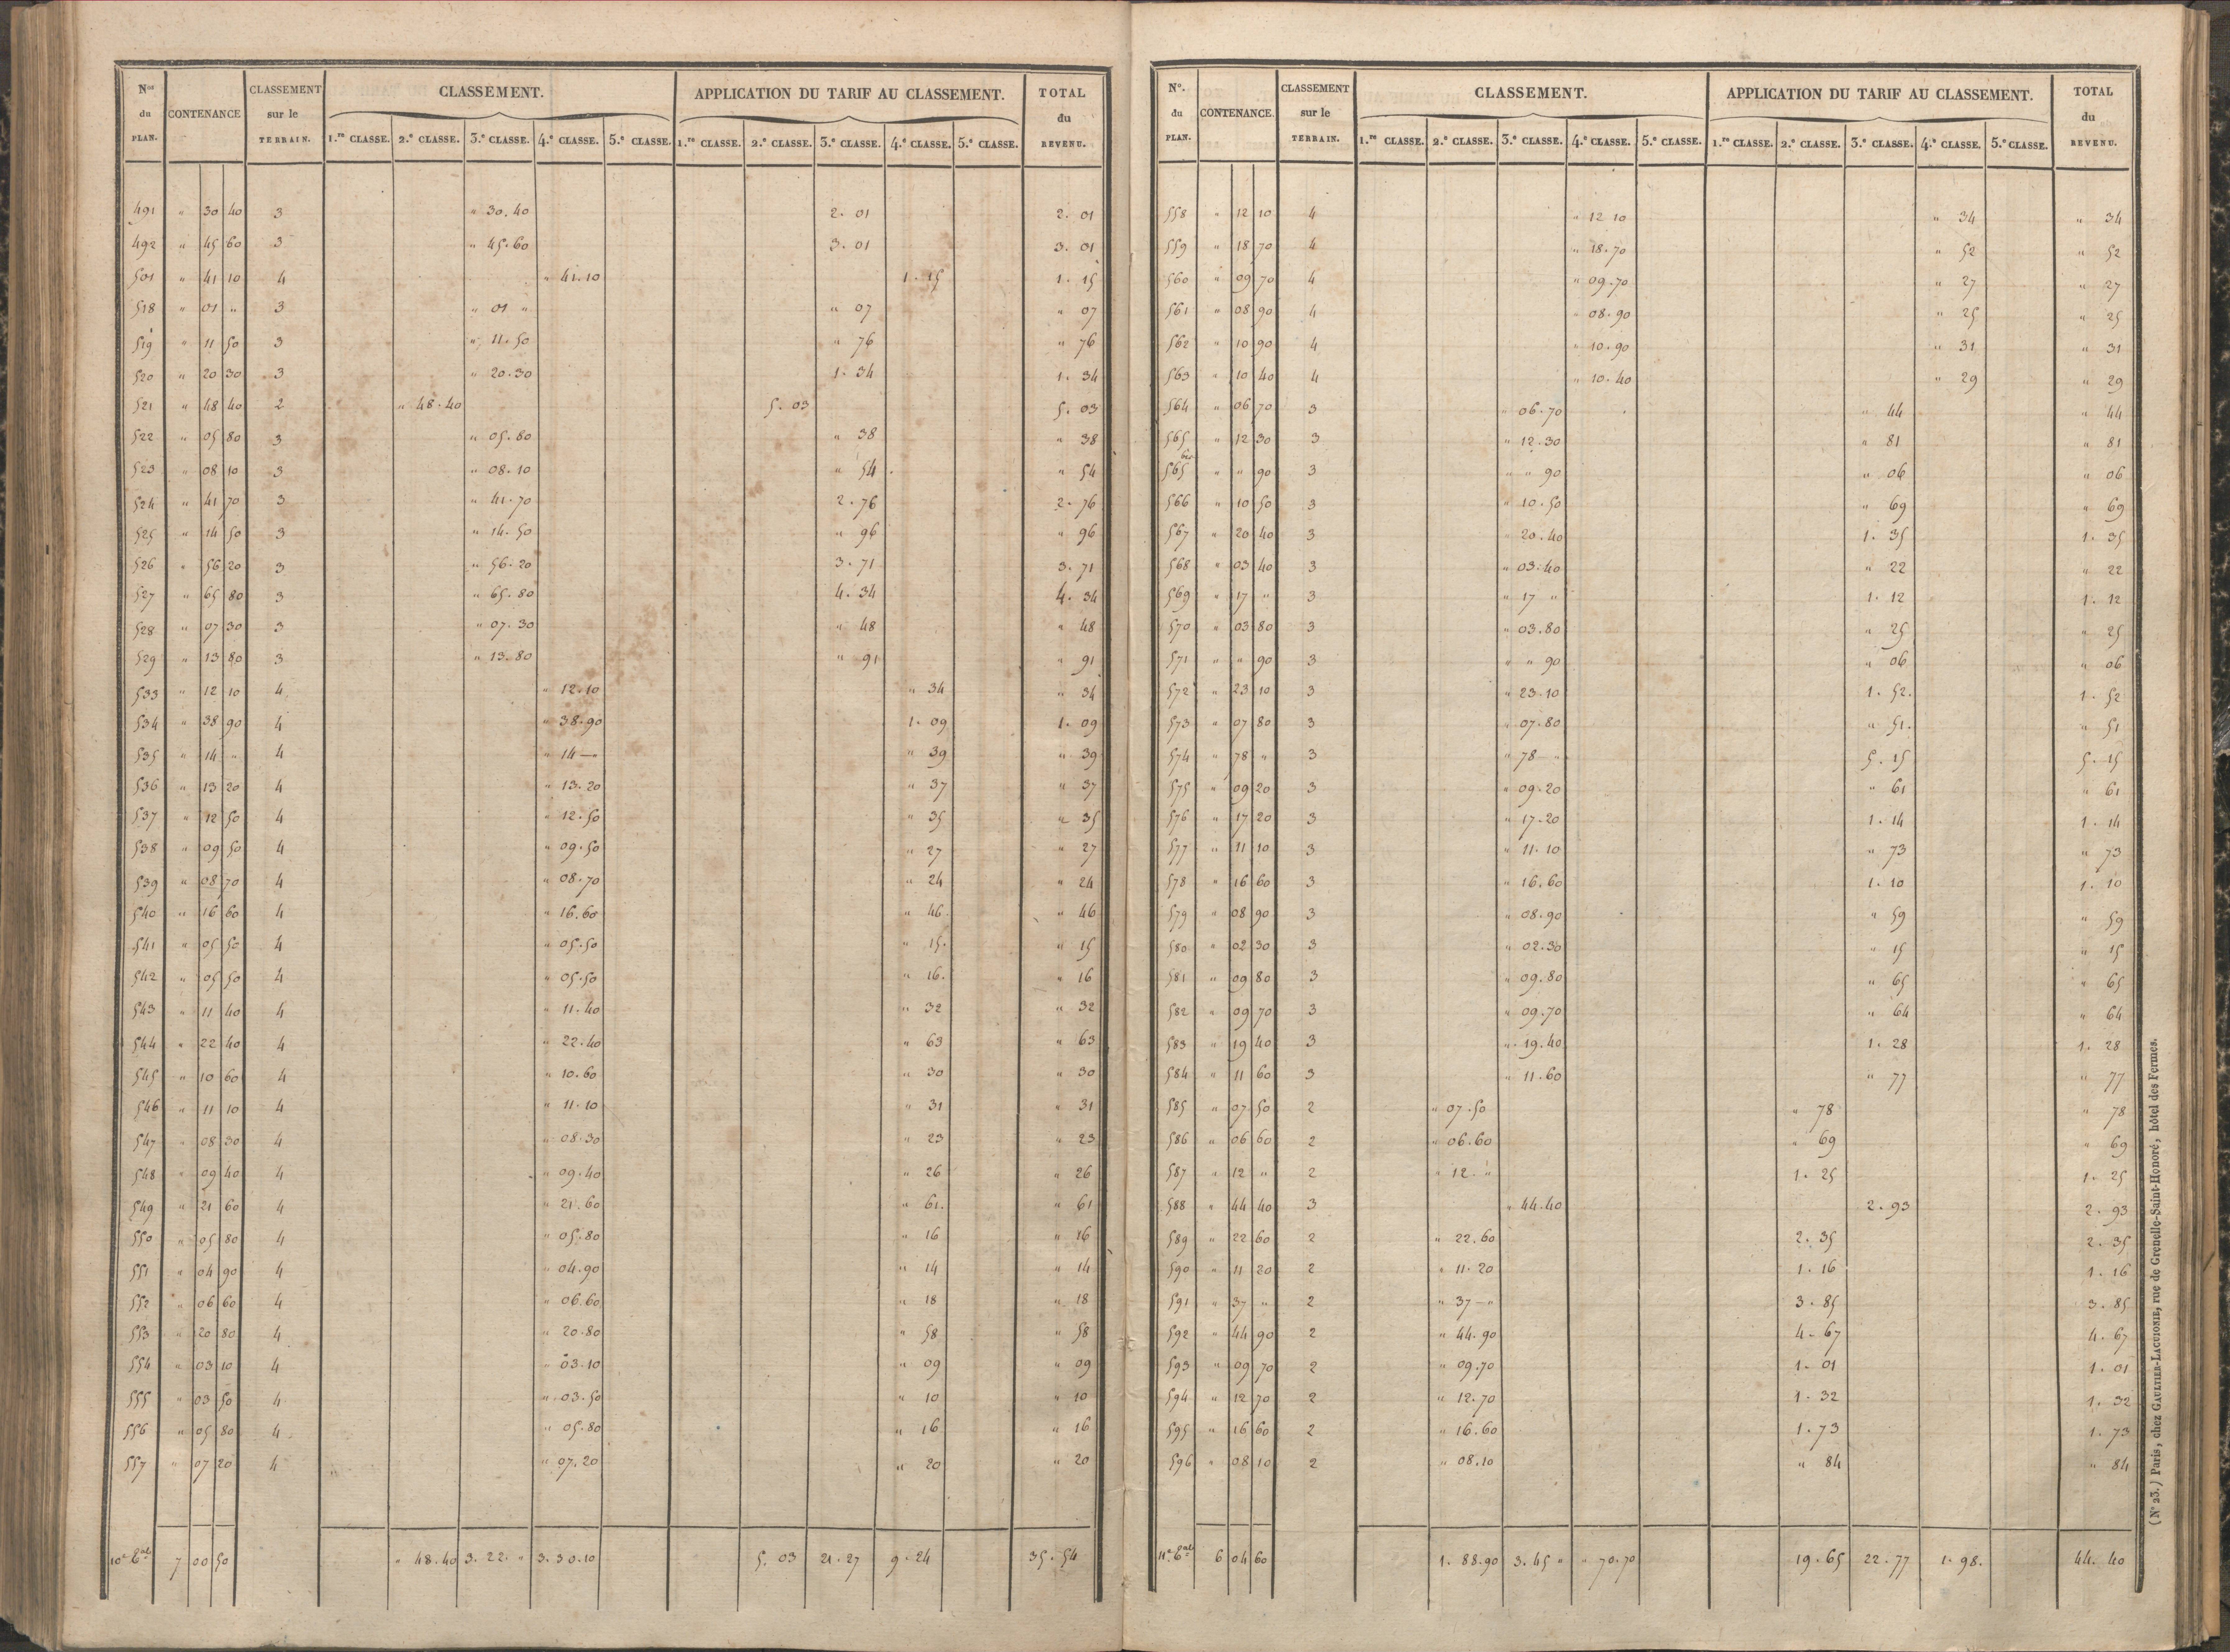 Nos du PLAN. CONTENANCE CLASSEMENT sur le TERRAIN. CLASSEMENT. APPLICATION DU TARIF AU CLASSEMENT. TOTAL du REVENU.
1.re CLASSE. 2.e CLASSE. 3.e CLASSE. 4.e CLASSE. 5.e CLASSE. 1.re CLASSE. 2.e CLASSE. 3.e CLASSE. 4.e CLASSE. 5.e CLASSE.
491 " 30 40 3 " 30.40 2. 01 2. 01
492 " 45 60 3 " 45.60 3. 01 3. 01
501 " 41 10 4 " 41.10 1. 15 1. 15
518 " 01 " 3 " 01 " " 07 " 07
519 " 11 50 3 " 11.50 " 76 " 76
520 " 20 30 3 " 20.30 1. 34 1. 34
521 " 48 40 2 " 48.40 5. 03 5. 03
522 " 05 80 3 " 05.80 " 38 " 38
523 " 08 10 3 " 08.10 " 54 " 54
524 " 41 70 3 " 41.70 2.76 2.76
525 " 14 50 3 " 14.50 " 96 " 96
526 " 56 20 3 " 56.20 3.71 3.71
527 " 65 80 3 " 65.80 4. 34 4. 34
528 " 07 30 3 " 07.30 " 48 " 48
529 " 13 80 3 " 13.80 " 91 " 91
533 " 12 10 4 " 12.10 " 34 " 34
534 " 38 90 4 " 38.90 1. 09 1. 09
535 " 14 " 4 " 14 — " 39 " 39
536 " 13 20 4 " 13.20 " 37 " 37
537 " 12 50 4 " 12.50 " 35 " 35
538 " 09 50 4 " 09.50 " 27 " 27
539 " 08 70 4 " 08.70 " 24 " 24
540 " 16 60 4 " 16.60 " 46 " 46
541 " 05 50 4 " 05.50 " 15. " 15
542 " 05 50 4 " 05.50 " 16. " 16
543 " 11 40 4 " 11.40 " 32 " 32
544 " 22 40 4 " 22.40 " 63 " 63
545 " 10 60 4 " 10.60 " 30 " 30
546 " 11 10 4 " 11.10 " 31 " 31
547 " 08 30 4 " 08.30 " 23 " 23
548 " 09 40 4 " 09.40 " 26 " 26
549 " 21 60 4 " 21.60 " 61. " 61
550 " 05 80 4 " 05.80 " 16 " 16
551 " 04 90 4 " 04.90 " 14 " 14
552 " 06 60 4 " 06.60 " 18 " 18
553 " 20 80 4 " 20.80 " 58 " 58
554 " 03 10 4 " 03.10 " 09 " 09
555 " 03 50 4 " 03.50 " 10 " 10
556 " 05 80 4 " 05.80 " 16 " 16
557 " 07 20 4 " 07.20 " 20 " 20
10e Total 7 00 50 " 48.40 3. 22. " 3.30.10 5. 03 21.27 9.24 35.54
No. du PLAN. CONTENANCE. CLASSEMENT sur le TERRAIN. CLASSEMENT. APPLICATION DU TARIF AU CLASSEMENT. TOTAL du REVENU.
1.re CLASSE. 2.e CLASSE. 3.e CLASSE. 4.e CLASSE. 5.e CLASSE. 1.re CLASSE. 2.e CLASSE. 3.e CLASSE. 4.e CLASSE. 5.e CLASSE.
558 " 12 10 4 " 12 10 " 34 " 34
559 " 18 70 4 " 18.70 " 52 " 52
560 " 09 70 4 " 09.70 " 27 " 27
561 " 08 90 4 " 08.90 " 25 " 25
562 " 10 90 4 " 10.90 " 31 " 31
563 " 10 40 4 " 10.40 " 29 " 29
564 " 06 70 3 " 06.70 " 44 " 44
565 " 12 30 3 " 12.30 " 81 " 81
565 bis " " 90 3 " " 90 " 06 " 06
566 " 10 50 3 " 10.50 " 69 " 69
567 " 20 40 3 " 20.40 1. 35 1. 35
568 " 03 40 3 " 03.40 " 22 " 22
569 " 17 " 3 " 17 " 1. 12 1. 12
570 " 03 80 3 " 03.80 " 25 " 25
571 " " 90 3 " " 90 " 06 " 06
572 " 23 10 3 " 23.10 1. 52. 1. 52
573 " 07 80 3 " 07.80 " 51. " 51
574 " 78 " 3 " 78 — " 5.15 5.15
575 " 09 20 3 " 09.20 " 61 " 61
576 " 17 20 3 " 17.20 1. 14 1. 14
577 " 11 10 3 " 11.10 " 73 " 73
578 " 16 60 3 " 16.60 1. 10 1. 10
579 " 08 90 3 " 08.90 " 59 " 59
580 " 02 30 3 " 02.30 " 15 " 15
581 " 09 80 3 " 09.80 " 65 " 65
582 " 09 70 3 " 09.70 " 64 " 64
583 " 19 40 3 " 19.40 1. 28 1. 28
584 " 11 60 3 " 11.60 " 77 " 77
585 " 07 50 2 " 07.50 " 78 " 78
586 " 06 60 2 " 06.60 " 69 " 69
587 " 12 " 2 " 12. " 1. 25 1. 25
588 " 44 40 3 " 44.40 2.93 2.93
589 " 22 60 2 " 22.60 2. 35 2.35
590 " 11 20 2 " 11.20 1. 16 1. 16
591 " 37 " 2 " 37 — " 3.85 3.85
592 " 44 90 2 " 44.90 4.67 4.67
593 " 09 70 2 " 09.70 1. 01 1. 01
594 " 12 70 2 " 12.70 1. 32 1. 32
595 " 16 60 2 " 16.60 1.73 1.73
596 " 08 10 2 " 08.10 " 84 " 84
11e Total 6 04 60 1. 88.90 3.45 " " 70.70 19.65 22.77 1. 98. 44. 40
(No 23.) Paris, chez GAULTIER-LAGUIONIE, rue de Grenelle-Saint-Honoré, hôtel des Fermes.